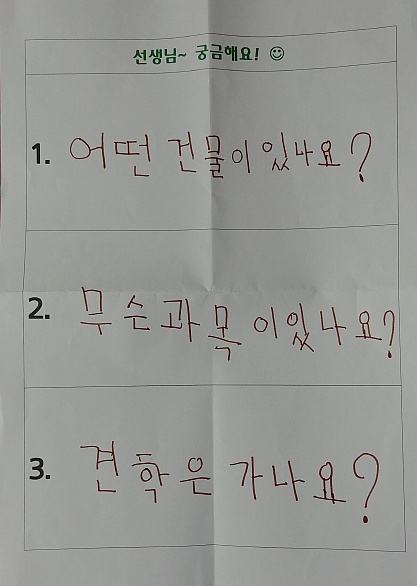 선생님~ 궁금해요! ☺
1. 어떤 건물이 있나요?
2. 무슨 과목이 있나요?
3. 견학은 가나요?